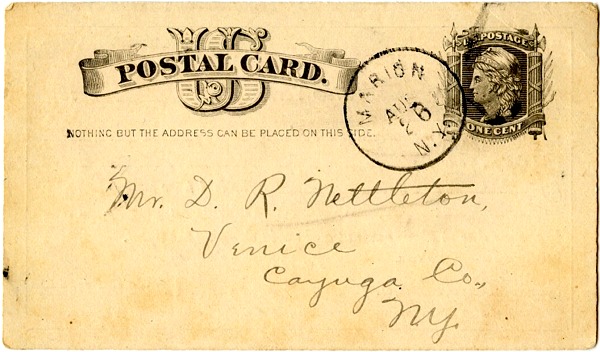 US
POSTAL CARD.
NOTHING BUT THE ADDRESS CAN BE PLACED ON THIS SIDE.
MARION
AUG
26
N.Y.
U.S. POSTAGE
ONE CENT
Mr. D. R. Nettleton,
Venice
Cayuga Co.,
NY.